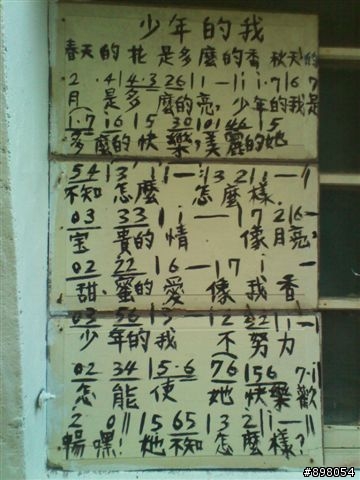 少年的我
春天的花 是多麼的香 秋天的
2 · 4 | 4·3 26 | 1 — | i i·7 | 6 7
月 是多 麼的亮, 少年的我是
1·7 | 6 | 5 30 | 01 46 | 5
多麼的快樂,美麗的她
54 | 3 1 i — | 3 2 1 i — |
不知怎麼 怎麼樣
03 33 | i — | 7 2 | 6 —
宝貴的情 像月亮,
02 22 | 6 — | 7 i —
甜蜜的愛 像我香
03 56 | 3 — | 2 32 | 1 — |
少年的我 不努力
02 34 | 5·6 76 | 56 7·i
怎能使她快樂歡
2 0 || 5 65 | 3 2 | i — ||
暢嘿! 她不知怎麼樣?
#898054